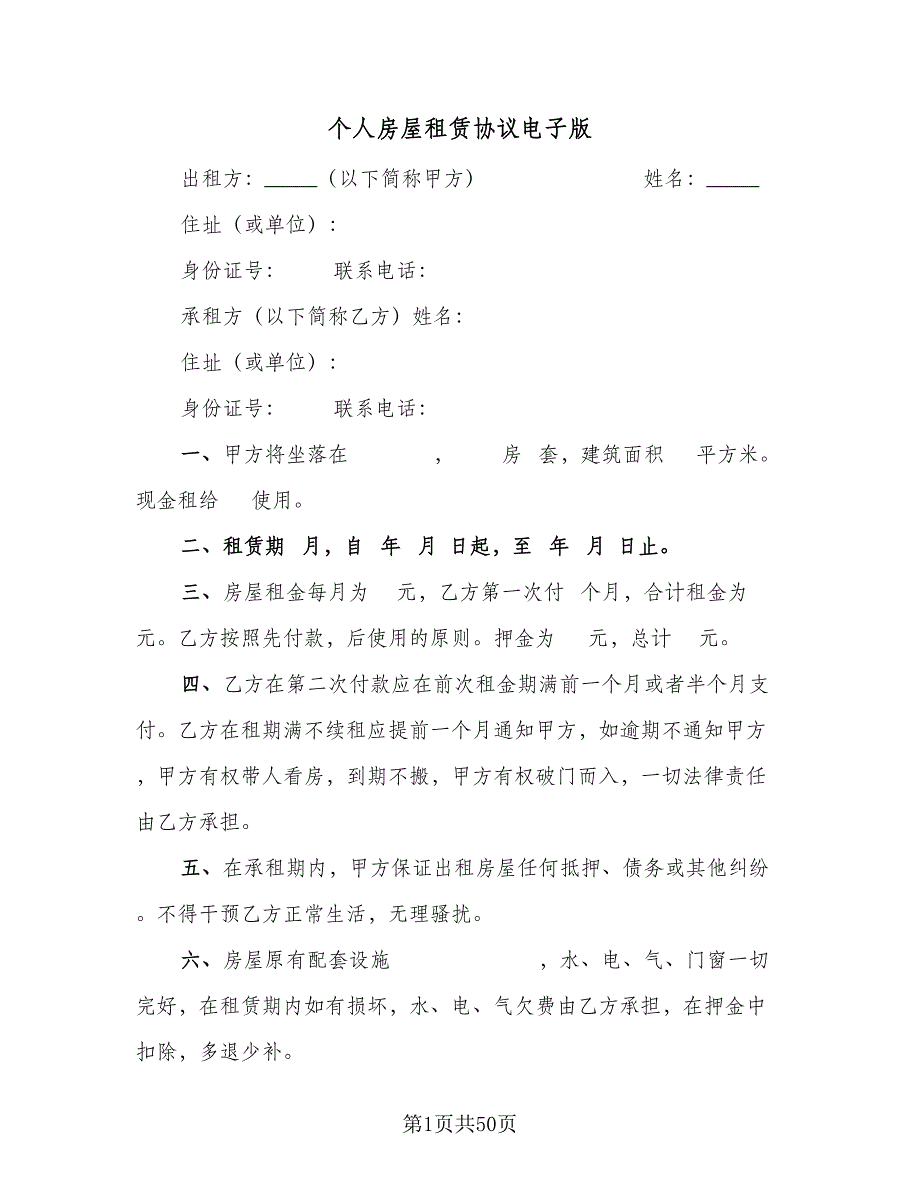 个人房屋租赁协议电子版
出租方：_____（以下简称甲方） 姓名：_____
住址（或单位）：
身份证号： 联系电话：
承租方（以下简称乙方）姓名：
住址（或单位）：
身份证号： 联系电话：
一、甲方将坐落在 ， 房 套，建筑面积 平方米。
现金租给 使用。
二、租赁期 月，自 年 月 日起，至 年 月 日止。
三、房屋租金每月为 元，乙方第一次付 个月，合计租金为
元。乙方按照先付款，后使用的原则。押金为 元，总计 元。
四、乙方在第二次付款应在前次租金期满前一个月或者半个月支
付。乙方在租期满不续租应提前一个月通知甲方，如逾期不通知甲方
，甲方有权带人看房，到期不搬，甲方有权破门而入，一切法律责任
由乙方承担。
五、在承租期内，甲方保证出租房屋任何抵押、债务或其他纠纷
。不得干预乙方正常生活，无理骚扰。
六、房屋原有配套设施 ，水、电、气、门窗一切
完好，在租赁期内如有损坏，水、电、气欠费由乙方承担，在押金中
扣除，多退少补。
第1页共50页